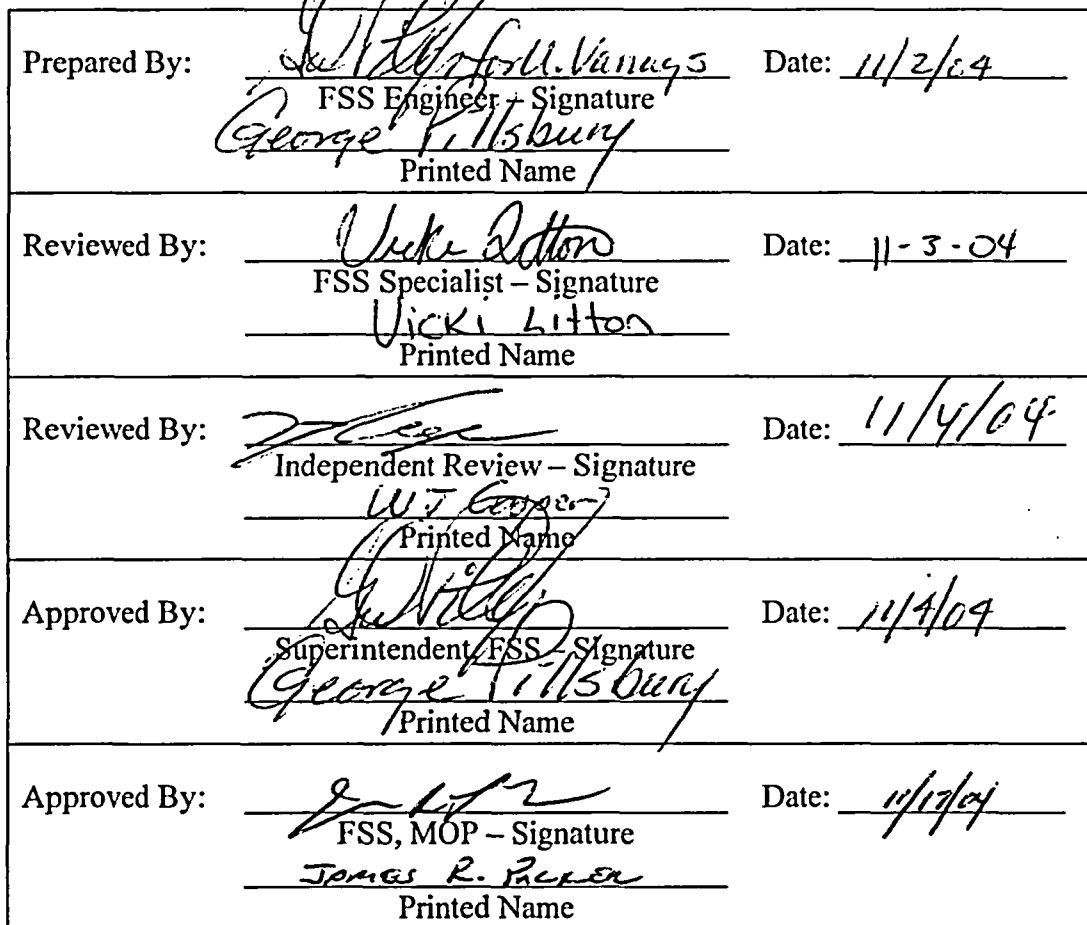 Prepared By: for M. Vanags Date: 11/2/04
FSS Engineer – Signature
George Pillsbury
Printed Name
Reviewed By: Vicki Litton Date: 11-3-04
FSS Specialist – Signature
Vicki Litton
Printed Name
Reviewed By: Date: 11/4/04
Independent Review – Signature
WJ Cooper
Printed Name
Approved By: Date: 11/4/04
Superintendent, FSS – Signature
George Pillsbury
Printed Name
Approved By: Date: 11/17/04
FSS, MOP – Signature
James R. Packer
Printed Name